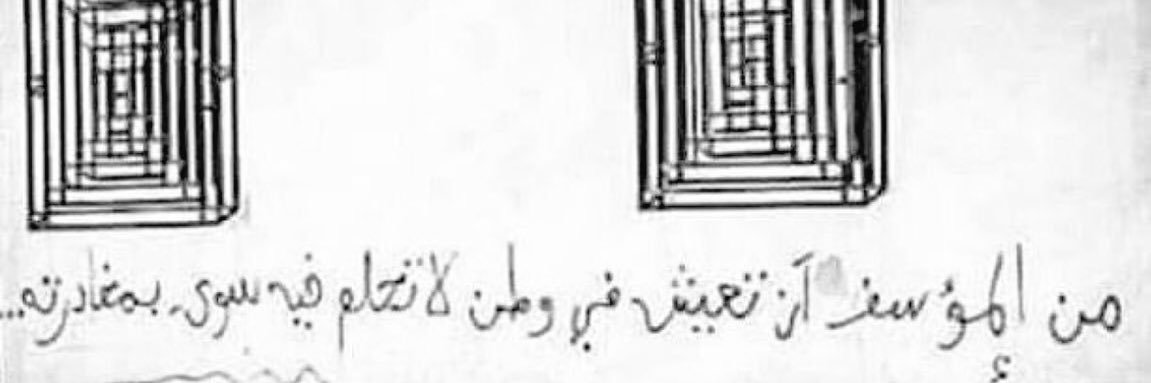 من المؤسف أن تعيش في وطن لا تحلم فيه سوى بمغادرته...